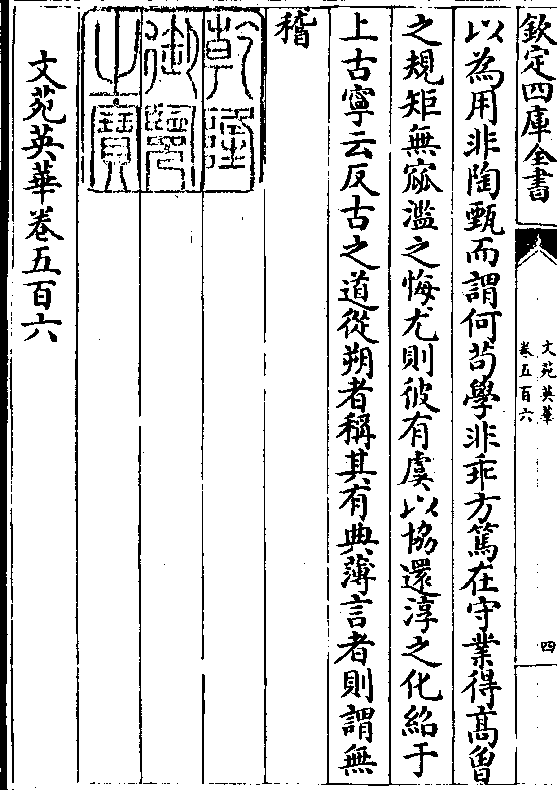 欽定四庫全書
文苑英華
卷五百六
四
以為用非陶甄而謂何茍學非乖方篤在守業得髙曽
之規矩無窳濫之悔尤則彼有虞以協還淳之化紹于
上古寧云反古之道從朔者稱其有典薄言者則謂無
稽
乾隆御覽之寶
文苑英華卷五百六